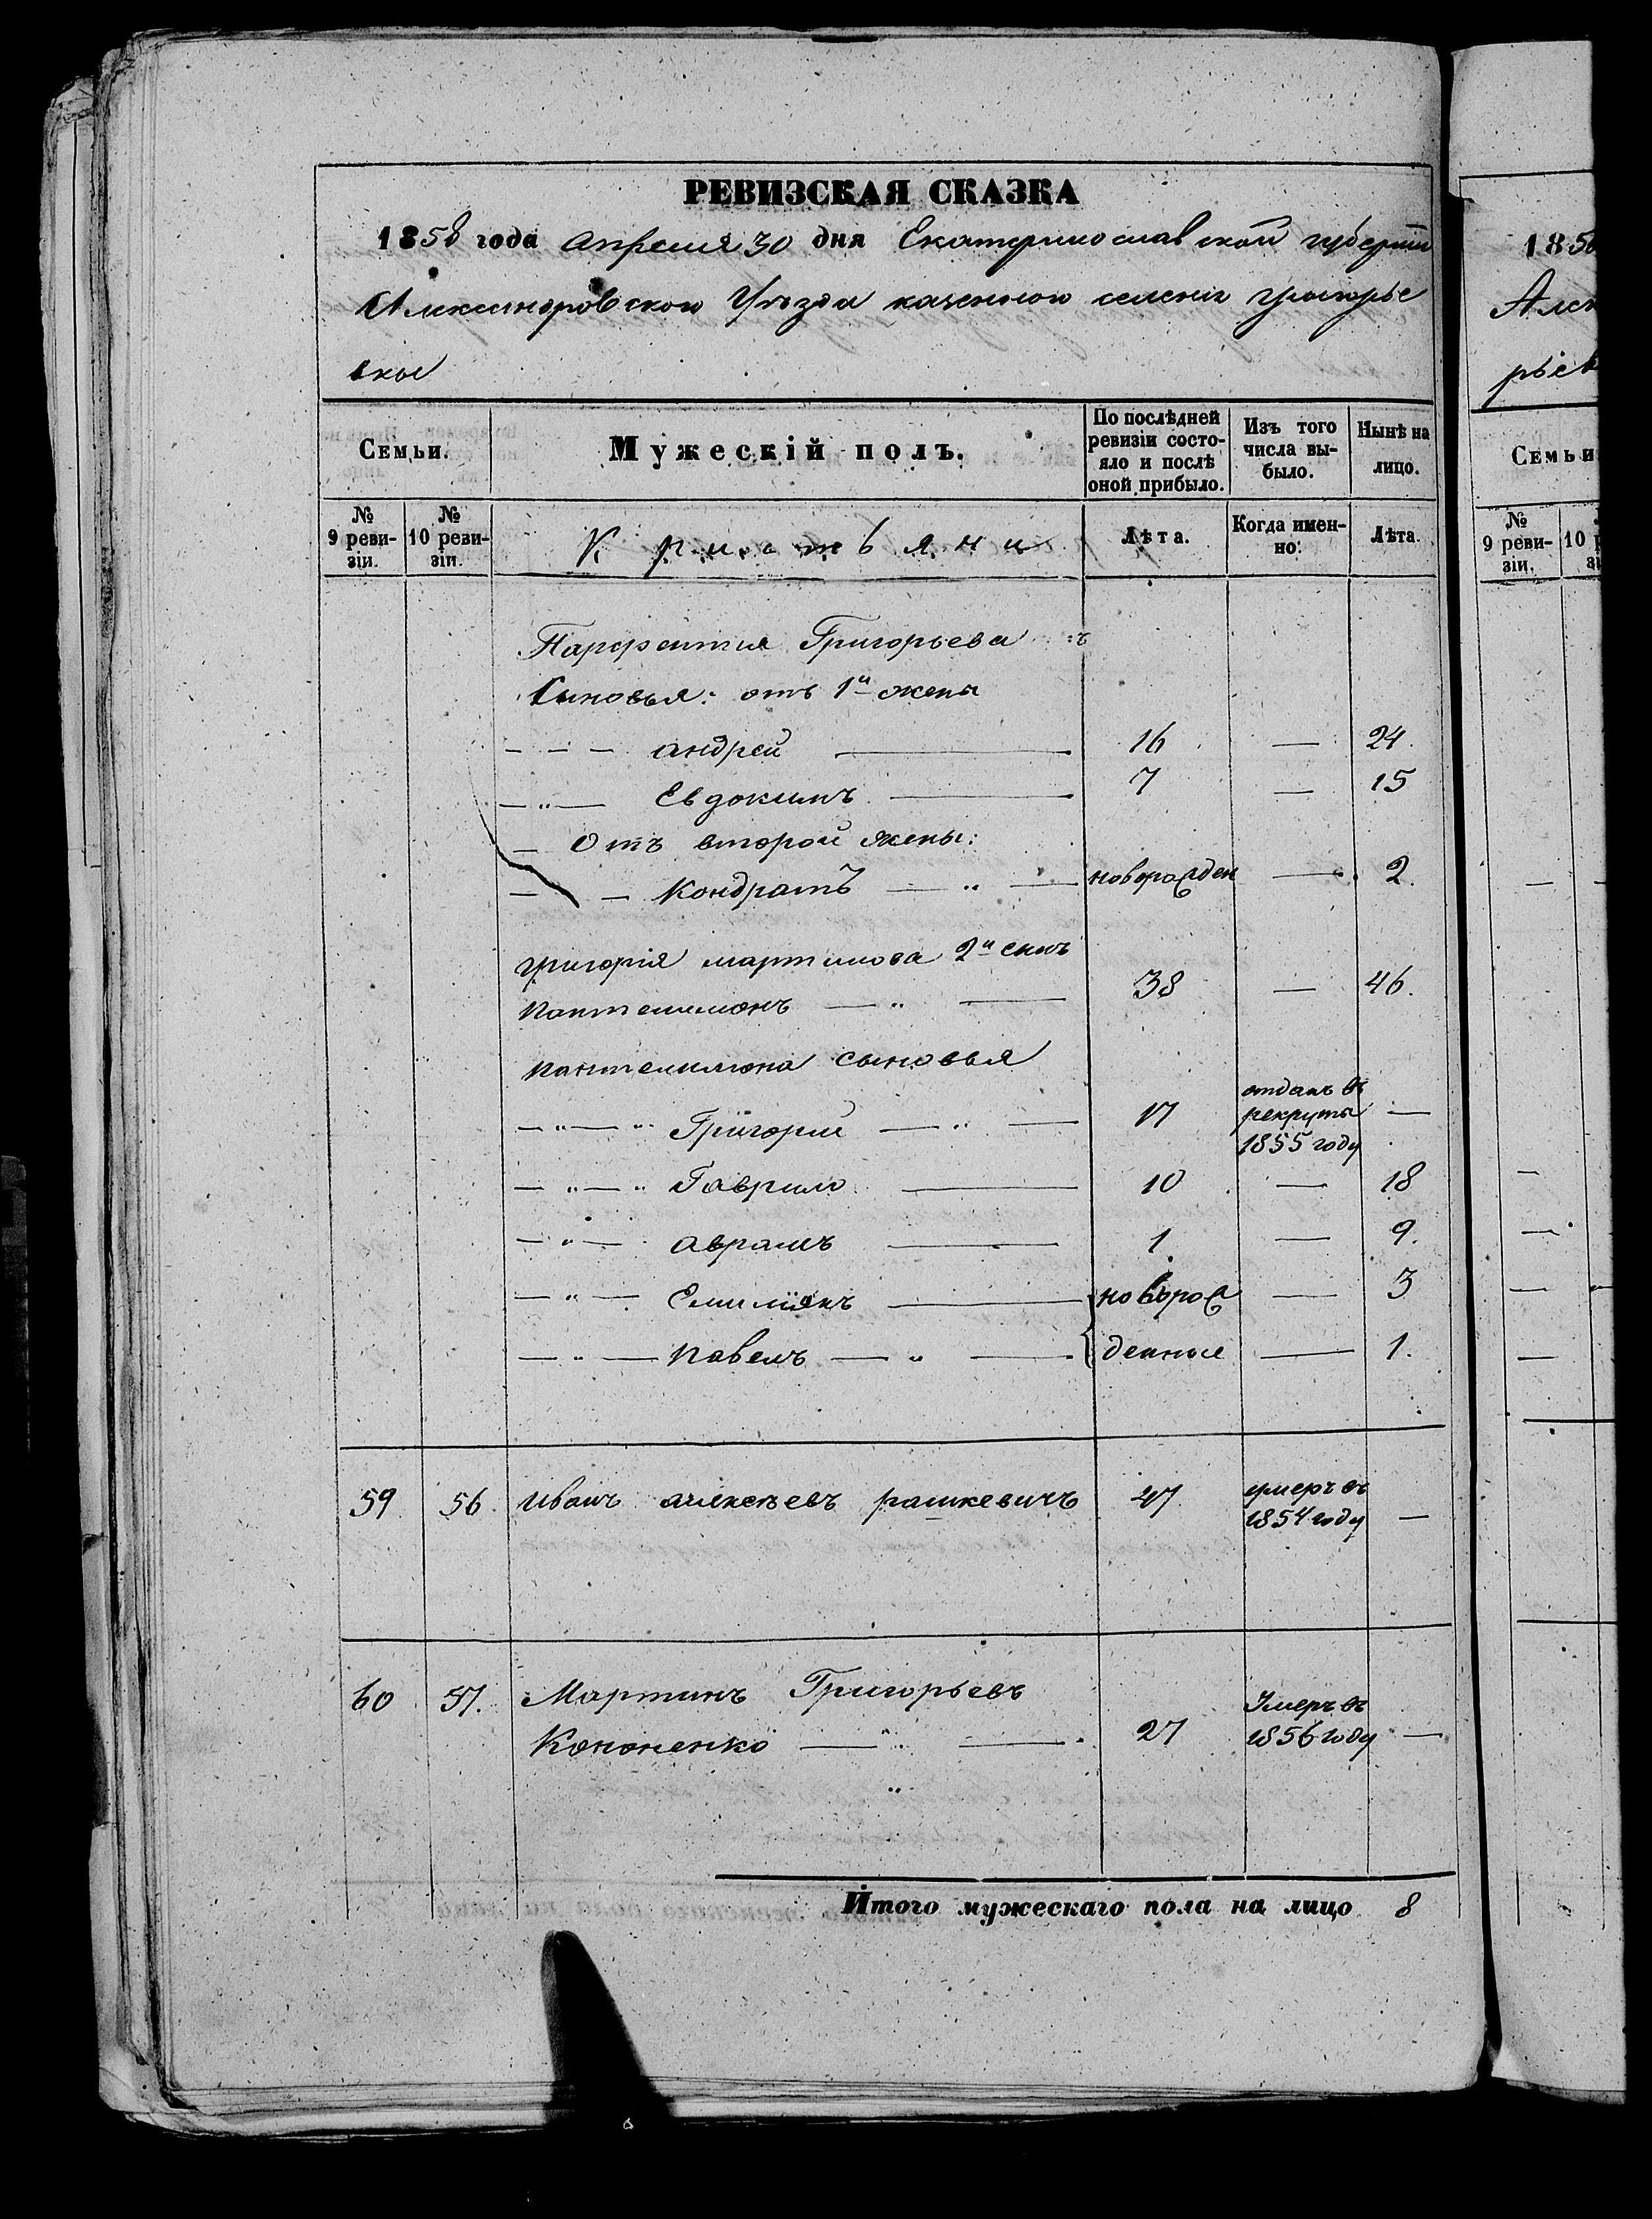 РЕВИЗСКАЯ СКАЗКА
1858 года Апреля 30 дня Екатеринославской губерніи
Александровского Уѣзда казенного селенія Григорье
вки
Семьи. Мужескій полъ. По послѣдней ревизіи состояло и послѣ оной прибыло. Изъ того числа выбыло. Нынѣ на лицо.
№ 9 ревизіи. № 10 ревизіи. Крисьтьяни Лѣта. Когда именно. Лѣта.
Парфентия Григорьева
Сыновья: отъ 1й жены
— — — андрей — 16 — 24.
— „ — Евдокимъ — 7 — 15
— Отъ второй жены:
— — Кондратъ — „ — новорожден — 2.
григорія мартинова 2й сынъ
пантелимонъ — „ — 38 — 46.
пантелимона сыновья
— „ — „ Григорій — „ — 17 отданъ въ рекруты 1855 году —
— „ — „ Гаврило — 10 — 18
— „ — аврамъ — 1. — 9.
— „ — Емиліянъ — новорож — 3
— „ — павелъ — „ — денные — 1.
59 56 иванъ алексѣевъ рашкевичъ 47 умеръ въ 1854 году —
60 57. Мартинъ Григорьевъ
Кононенко — „ — 27 Умеръ въ 1856 году —
Итого мужескаго пола на лицо 8
1858
Алек
рьев
Семьи
№ 9 ревизіи. 10